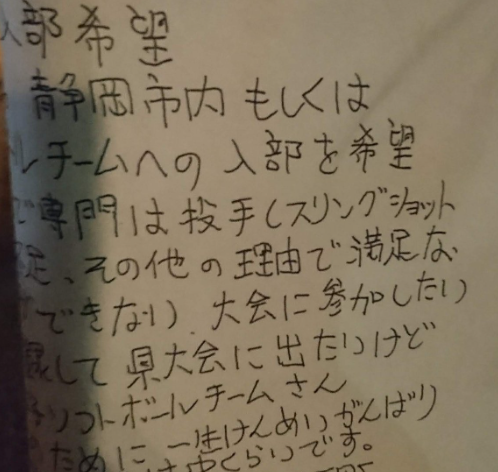 部希望
静岡市内もしくは
ルチームへの入部を希望
専門は投手(スリングショット
足、その他の理由で満足な
できない、大会に参加したい
して県大会に出たいけど
ソフトボールチームさん
ために一生けんめいがんばり
くらいです。